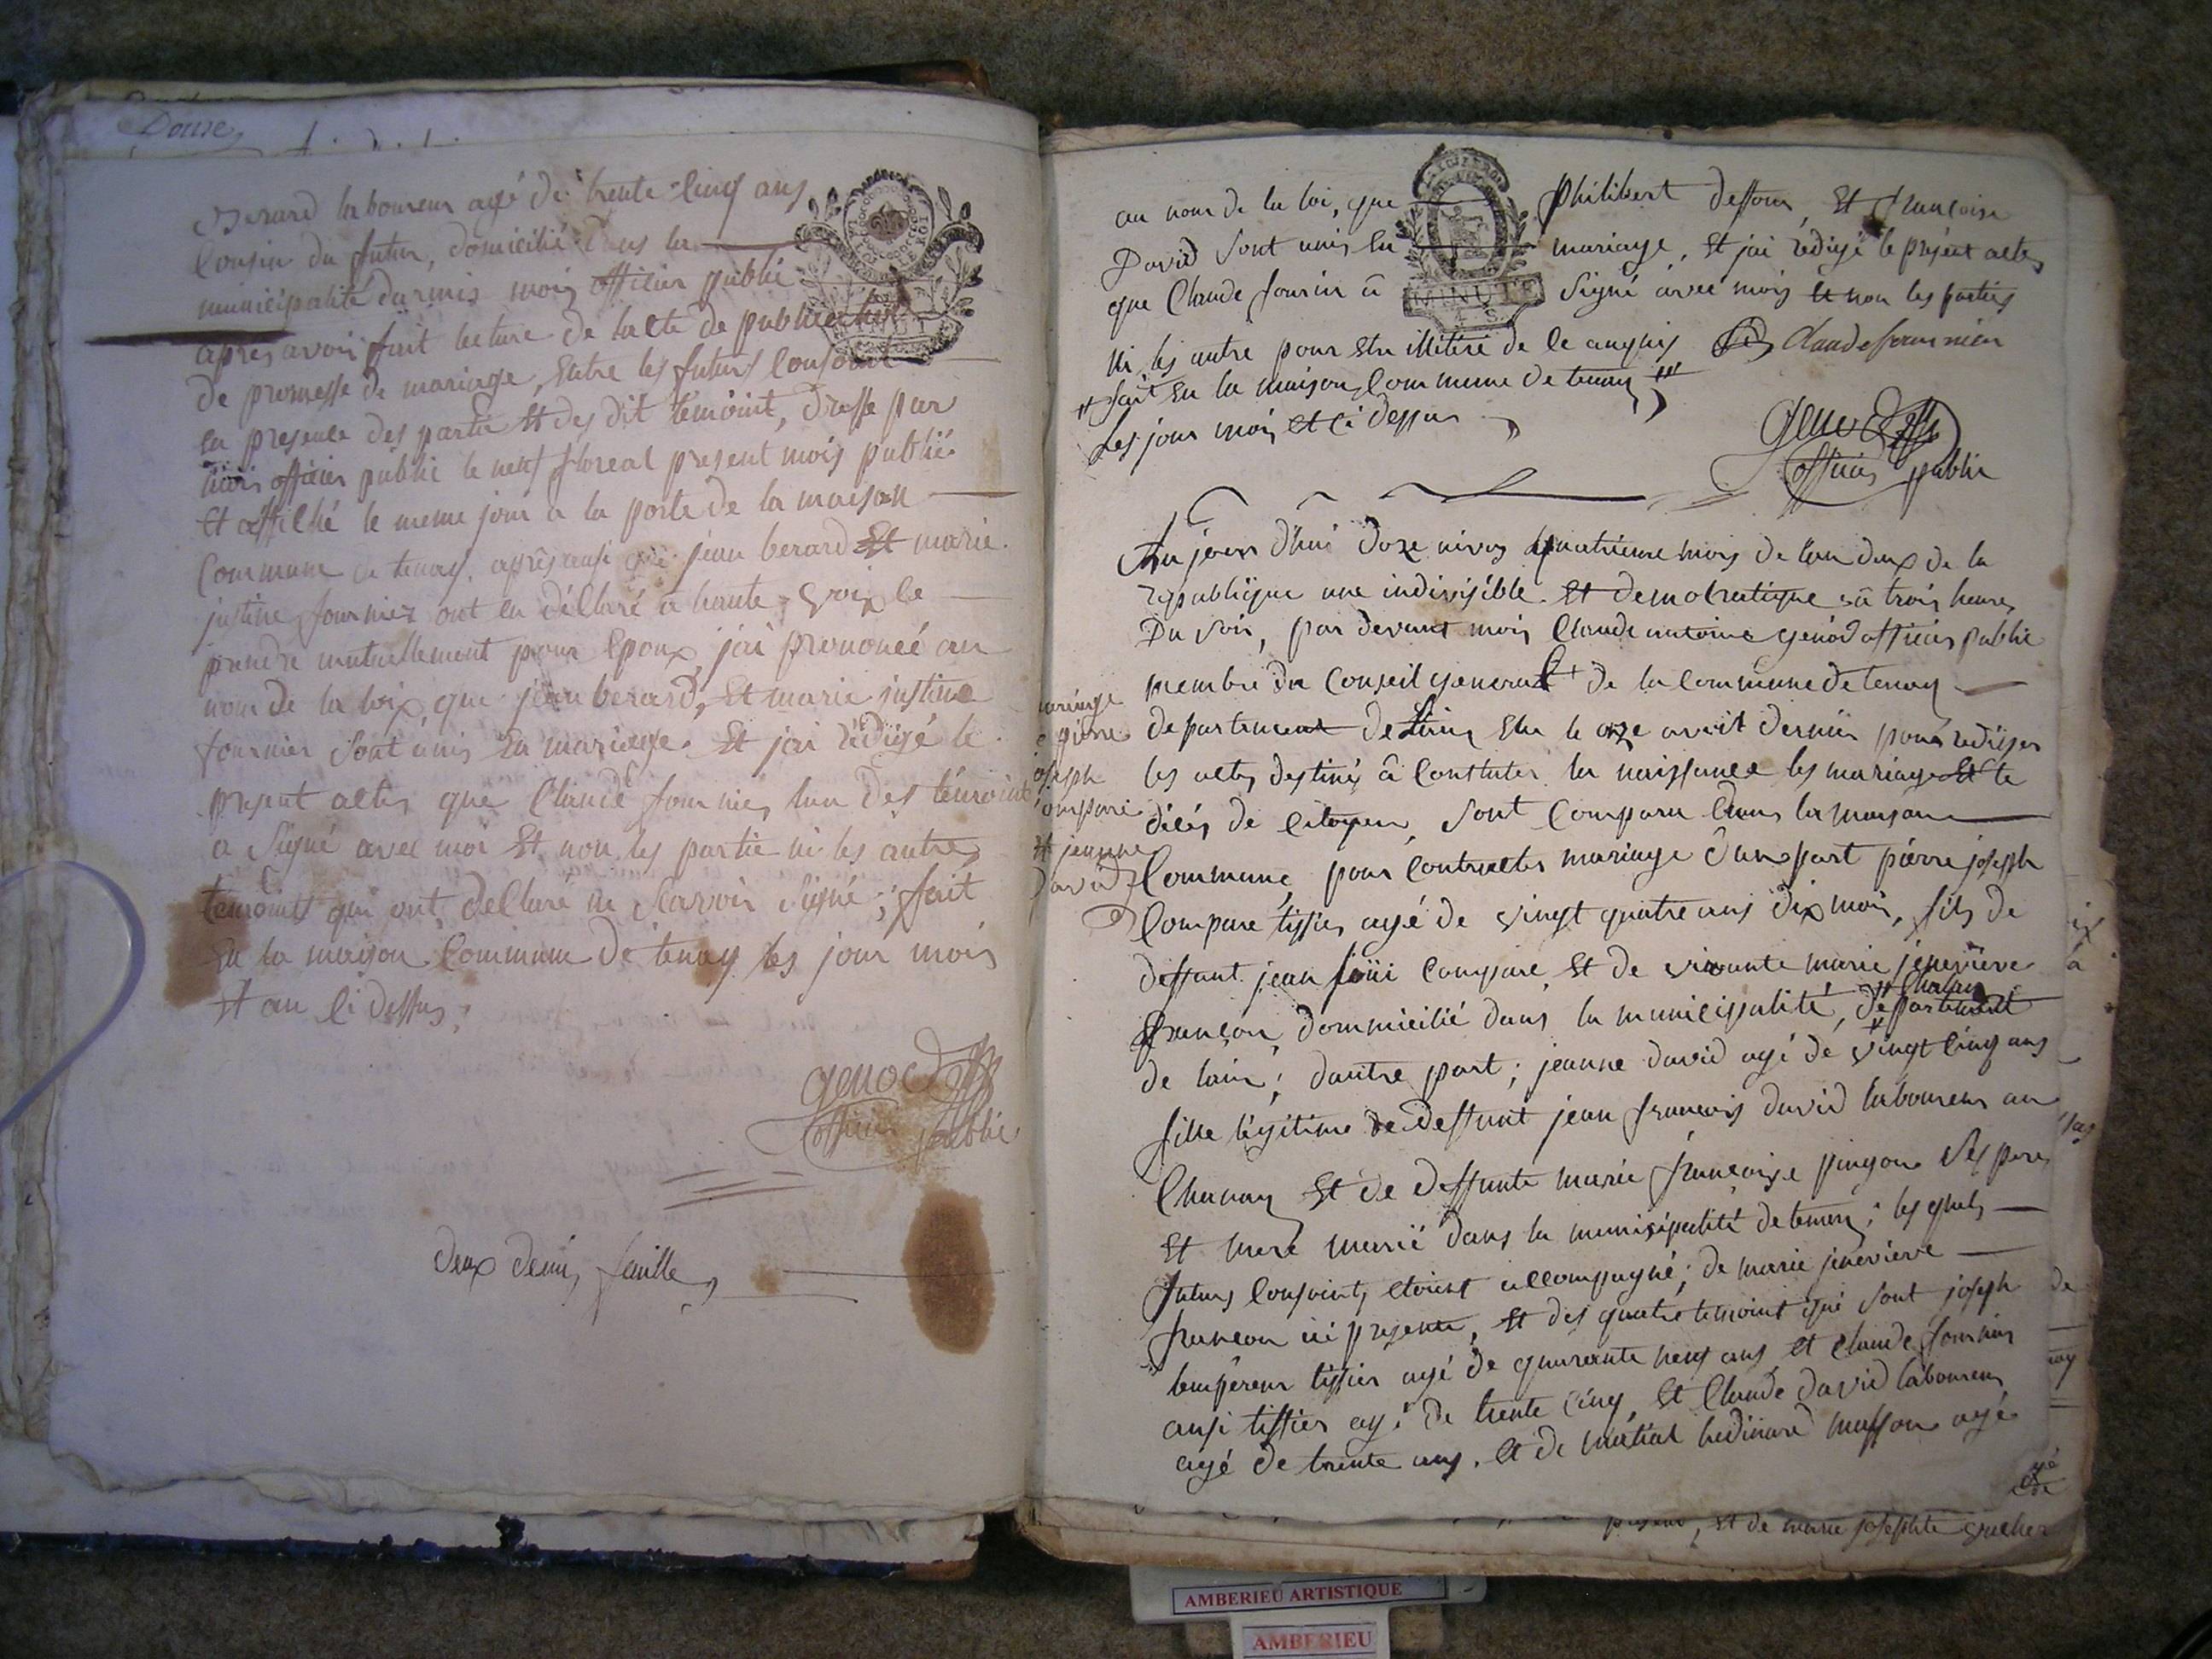 Douze
Berard laboureur agé de trente-cinq ans
Cousin du futur, domicilié dans la
municipalité moi officier public
après avoir fait lecture de lacte de publication
de promesse de mariage, entre les futurs Conjoint
en presence des partie Et des dit temoint, dressé par
moi officier public le neuf floreal present mois publié
Et affiché le meme jour a la porte de la maison
Commune de tenay, après aussi que jean berard Et marie
justine fournier ont eu déClaré a haute voix Se
prendre mutuellement pour Epoux, jai prononcé au
nom de la loix, que jean berard, Et marie justine
fournier Sont unis En mariage. Et jai rédigé le
present actes que Claude fournier lun des témoint
a Signé avec moi Et non les partie ni les autres
temoint qui ont déClaré ne Scavoir Signé; fait
En la maison Commune de tenay les jour mois
Et an Ci dessus;
genod
officier public
deux demis feuille
au nom de la loi, que philibert deffour, Et francoise
David Sont unis En mariage, Et jai rédigé le présent actes
que Claude fournier à MINUTE Signé avec moi Et non les parties
ni les autre pour Etre illitéré de Ce enquis Claude fournier
fait En la maison Commune de tenay
Les jour mois et Ci dessus
genod
officier public
Au jourd'hui doze nivos quatrieme mois de lan deux de la
republique une indivisible Et demoCratique à trois heures
Du soir, par devant moi Claude antoine genod officier public
membre du Conseil general de la Commune de tenay
departement de Lain Elu le onze avril dernier pour rediger
les actes destinés à Constater la naissance les mariage Et le
décés de Citoyens, Sont Comparu dans la maison
Commune pour Contracter mariage dune part pierre joseph
mariage
pierre
joseph
Compare
Et jeanne
david
Compare tissier agé de vingt quatre ans dix mois, fils de
deffunt jean Compare, Et de vivante marie jenevieve
françon, dommicilié dans la municipalité, departement
de lain; dautre part; jeanne david agé de vingt Cinq ans
fille légitime de deffunt jean francois david laboureur au
Chanay Et de deffunte marie françoise pingon Ses pere
Et mere marié dans la municipalité de tenay; les quels
futurs Conjoint, étoient accompagné; de marie jenevieve
francon ici presente, Et des quatre temoint qui sont joseph
lempereur tissier agé de quarante neuf ans, Et Claude fournier
aussi tissier agé de trente Cinq, Et Claude david laboureur
agé de trente ans. Et de masson agé
present, Et de marie josephte
AMBERIEU ARTISTIQUE
AMBERIEU